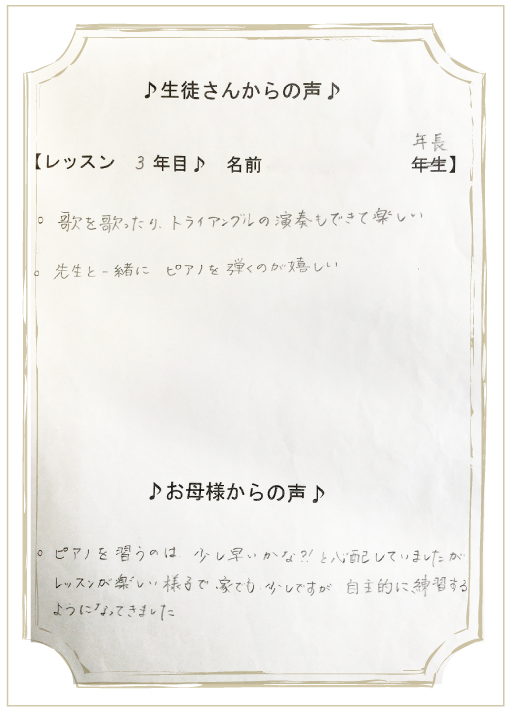 ♪生徒さんからの声♪
年長
【レッスン 3 年目♪ 名前 年生】
○ 歌を歌ったり、トライアングルの演奏もできて楽しい
○ 先生と一緒に ピアノを弾くのが嬉しい
♪お母様からの声♪
○ ピアノを習うのは 少し早いかな?! と心配していましたが
レッスンが楽しい様子で、家でも、少しですが 自主的に練習する
ようになってきました